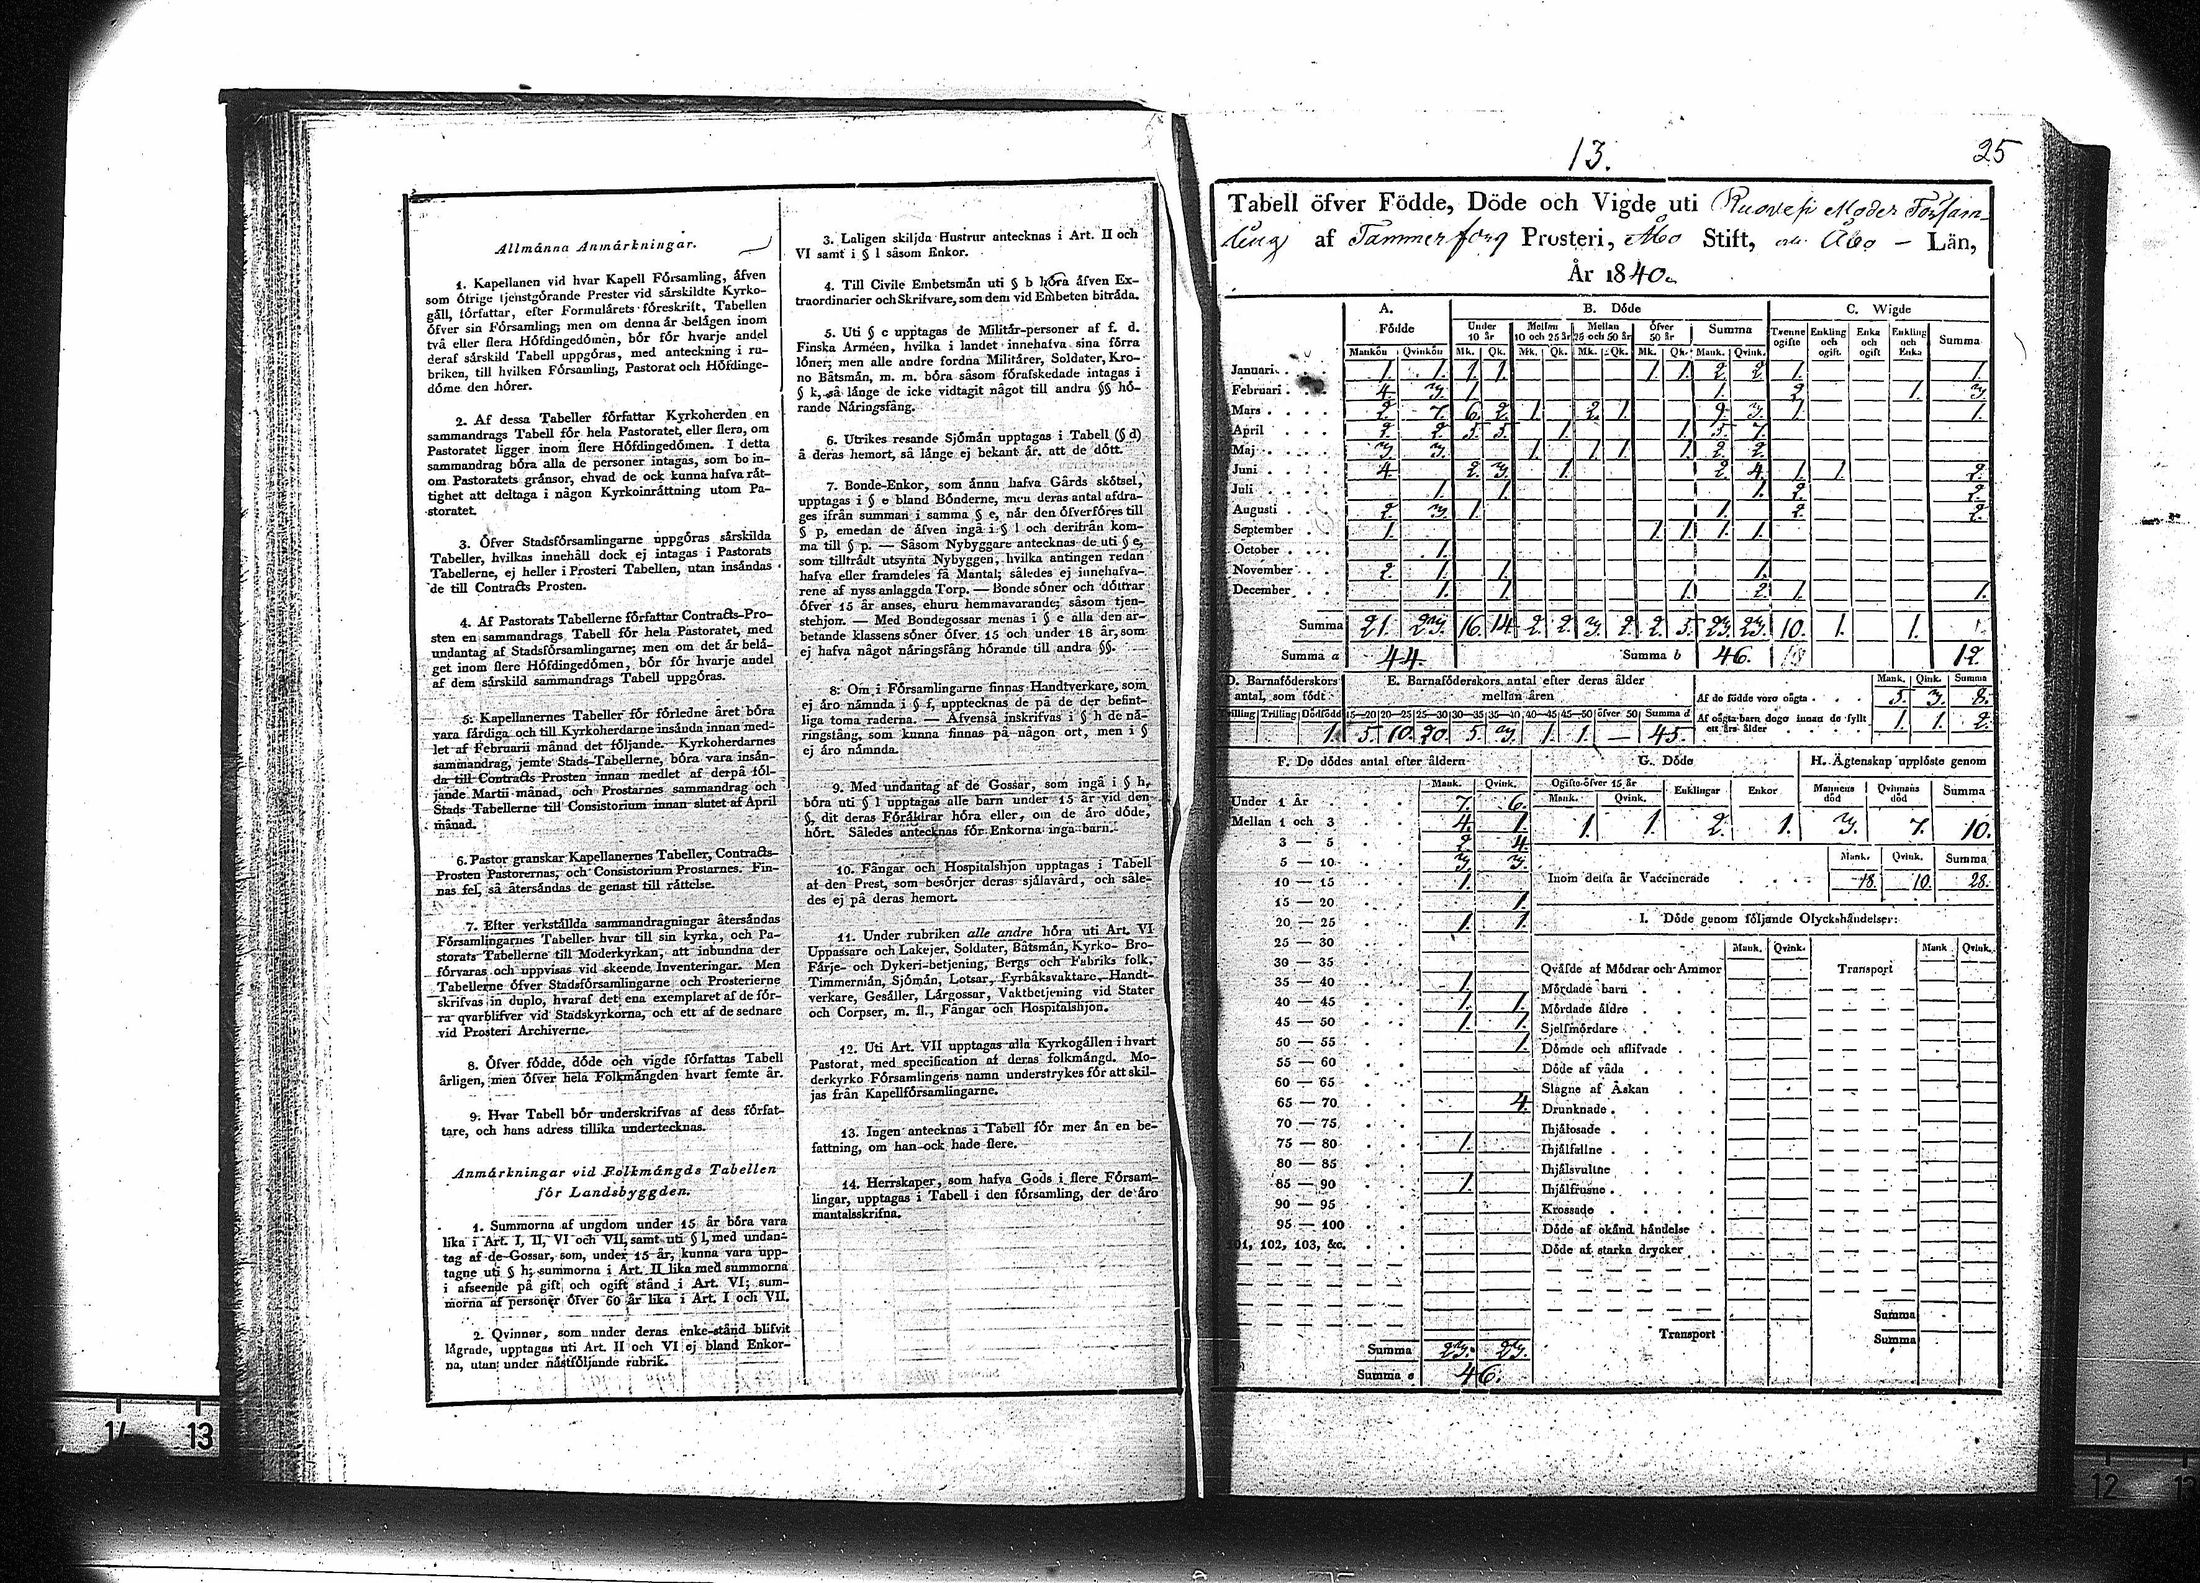 Allmånna Anmårkningar.
1. Kapellanen vid hvar Kapell Fórsamling, åfven
som ófrige tjenstgórande Prester vid sårskildte Kyrko-
gåll, fórfattar, efter Formulårets fóreskrift, Tabellen
ófver sin Fórsamling; men om denna år belågen inom
två eller flera Hófdingedómen, bór fór hvarje andel
deraf sårskild Tabell uppgóras, med anteckning i ru-
briken, till hvilken Fórsamling, Pastorat och Hófdinge-
dóme den hórer.
2. Af dessa Tabeller fórfattar Kyrkoherden en
sammandrags Tabell fór hela Pastoratet, eller flera, om
Pastoratet ligger inom flere Hófdingedómen. I detta
sammandrag bóra alla de personer intagas, som bo in-
om Pastoratets grånsor, ehvad de ock kunna hafva råt-
tighet att deltaga i någon Kyrkoinråttning utom Pa-
storatet.
3. Ófver Stadsfórsamlingarne uppgóras sårskilda
Tabeller, hvilkas innehåll dock ej intagas i Pastorats
Tabellerne, ej heller i Prosteri Tabellen, utan insåndas
de till Contracts Prosten.
4. Af Pastorats Tabellerne fórfattar Contracts-Pro-
sten en sammandrags Tabell fór hela Pastoratet, med
undantag af Stadsfórsamlingarne; men om det år belå-
get inom flere Hófdingedómen, bór fór hvarje andel
af dem sårskild sammandrags Tabell uppgóras.
5. Kapellanernes Tabeller fór fórledne året bóra
vara fårdiga och till Kyrkoherdarne insånda innan med-
let af Februarii månad det fóljande. Kyrkoherdarnes
sammandrag, jemte Stads-Tabellerne, bóra vara insån-
da till Contracts Prosten innan medlet af derpå fól-
jande Martii månad, och Prostarnes sammandrag och
Stads Tabellerne till Consistorium innan slutet af April
månad.
6. Pastor granskar Kapellanernes Tabeller, Contracts-
Prosten Pastorernas, och Consistorium Prostarnes. Fin-
nas fel, så återsåndas de genast till råttelse.
7. Efter verkstållda sammandragningar återsåndas
Fórsamlingarnes Tabeller hvar till sin kyrka, och Pa-
storats Tabellerne till Moderkyrkan, att inbundna der
fórvaras och uppvisas vid skeende Inventeringar. Men
Tabellerne ófver Stadsfórsamlingarne och Prosterierne
skrifvas in duplo, hvaraf det ena exemplaret af de fór-
ra qvarblifver vid Stadskyrkorna, och ett af de sednare
vid Prosteri Archiverne.
8. Ófver fódde, dóde och vigde fórfattas Tabell
årligen, men ófver hela Folkmångden hvart femte år.
9. Hvar Tabell bór underskrifvas af dess fórfat-
tare, och hans adress tillika undertecknas.
Anmårkningar vid Folkmångds Tabellen
fór Landsbyggden.
1. Summorna af ungdom under 15 år bóra vara
lika i Art. I, II, VI och VII, samt uti § l, med undan-
tag af de Gossar, som, under 15 år, kunna vara upp-
tagne uti § h; summorna i Art. II lika med summorna
i afseende på gift och ogift stånd i Art. VI; sum-
morna af personer ófver 60 år lika i Art. I och VII.
2. Qvinnor, som under deras enke-stånd blifvit
lågrade, upptagas uti Art. II och VI ej bland Enkor-
na, utan under nåstfóljande rubrik.
3. Laligen skiljda Hustrur antecknas i Art. II och
VI samt i § l såsom Enkor.
4. Till Civile Embetsmån uti § b hóra åfven Ex-
traordinarier och Skrifvare, som dem vid Embeten bitråda.
5. Uti § c upptagas de Militår-personer af f. d.
Finska Arméen, hvilka i landet innehafva sina fórra
lóner; men alle andre fordna Militårer, Soldater, Kro-
no Båtsmån, m. m. bóra såsom fórafskedade intagas i
§ k, så långe de icke vidtagit något till andra §§ hó-
rande Nåringsfång.
6. Utrikes resande Sjómån upptagas i Tabell (§ d)
å deras hemort, så långe ej bekant år, att de dótt.
7. Bonde-Enkor, som ånnu hafva Gårds skótsel,
upptagas i § e bland Bónderne, men deras antal afdra-
ges ifrån summan i samma § e, når den ófverfóres till
§ p, emedan de åfven ingå i § l och derifrån kom-
ma till § p. — Såsom Nybyggare antecknas de uti § e,
som tilltrådt utsynta Nybyggen, hvilka antingen redan
hafva eller framdeles få Mantal; således ej innehafva-
rene af nyss anlaggda Torp. — Bonde sóner och dóttrar
ófver 15 år anses, ehuru hemmavarande, såsom tjen-
stehjon. — Med Bondegossar menas i § e alla den ar-
betande klassens sóner ófver 15 och under 18 år, som
ej hafva något nåringsfång hórande till andra §§.
8. Om i Fórsamlingarne finnas Handtverkare, som
ej åro nåmnda i § f, upptecknas de på de der befint-
liga toma raderna. — Åfvenså inskrifvas i § h de nå-
ringsfång, som kunna finnas på någon ort, men i §
ej åro nåmnda.
9. Med undantag af de Gossar, som ingå i § h,
bóra uti § l upptagas alle barn under 15 år vid den
§, dit deras Fóråldrar hóra eller, om de åro dóde,
hórt. Således antecknas fór Enkorna inga barn.
10. Fångar och Hospitalshjon upptagas i Tabell
af den Prest, som besórjer deras sjålavård, och såle-
des ej på deras hemort.
11. Under rubriken alle andre hóra uti Art. VI
Uppassare och Lakejer, Soldater, Båtsmån, Kyrko- Bro-
Fårje- och Dykeri-betjening, Bergs och Fabriks folk,
Timmermån, Sjómån, Lotsar, Fyrbåksvaktare, Handt-
verkare, Gesåller, Lårgossar, Vaktbetjening vid Stater
och Corpser, m. fl., Fångar och Hospitalshjon.
12. Uti Art. VII upptagas alla Kyrkogållen i hvart
Pastorat, med specification af deras folkmångd. Mo-
derkyrko Fórsamlingens namn understrykes fór att skil-
jas från Kapellfórsamlingarne.
13. Ingen antecknas i Tabell fór mer ån en be-
fattning, om han ock hade flere.
14. Herrskaper, som hafva Gods i flere Fórsam-
lingar, upptagas i Tabell i den fórsamling, der de åro
mantalsskrifna.
13.
25
Tabell öfver Födde, Döde och Vigde uti Ruovesi Moder Försam-
ling af Tammerfors Prosteri, Åbo Stift, och Åbo – Län,
År 1840.
A. B. Dóde C. Wigde
Fódde Under 10 år Mellan 10 och 25 år Mellan 25 och 50 år Ófver 50 år Summa Tvenne ogifte Enkling och ogift. Enka och ogift Enkling och Enka Summa
Mankón Qvinkón Mk. Qk. Mk. Qk. Mk. Qk. Mk. Qk. Mank. Qvink.
Januari 1. 1. 1. 1. 1. 1. 2. 2. 1. 1.
Februari 4. 3. 1. 1. 2. 1. 3.
Mars 2. 7. 6. 2. 1. 2. 1. 9. 3. 1. 1.
April 2. 2. 5. 5. 1. 1. 5. 7.
Maj 3. 3. 1. 1. 1. 1. 2. 2.
Juni 4. 2. 3. 1. 2. 4. 1. 1. 2.
Juli 1. 1. 1. 2. 2.
Augusti 2. 3. 1. 1. 2. 2.
September 1. 1. 1. 1. 1.
October 1.
November 2. 1. 1. 1.
December 1. 1. 1. 2. 1. 1.
Summa 21. 23. 16. 14. 2. 2. 3. 2. 2. 5. 23. 23. 10. 1. 1.
Summa a 44. Summa b 46. 12.
D. Barnafóderskors antal, som fódt E. Barnafóderskors antal efter deras ålder mellan åren
Tvilling Trilling Dódfódd 15—20 20—25 25—30 30—35 35—40 40—45 45—50 ófver 50 Summa d
1. 5. 10. 20. 5. 3. 1. 1. — 45.
Mank. Qink. Summa
Af de fódde voro oågta 5. 3. 8.
Af oågta barn dogo innan de fyllt ett års ålder 1. 1. 2.
F. De dódes antal efter åldern
Mank. Qvink.
Under 1 År 7. 6.
Mellan 1 och 3 4. 1.
3 — 5 2. 4.
5 — 10 3. 3.
10 — 15 1.
15 — 20 1.
20 — 25 1. 1.
25 — 30
30 — 35
35 — 40 1.
40 — 45 1. 1.
45 — 50 1. 1.
50 — 55 1.
55 — 60
60 — 65
65 — 70 4.
70 — 75
75 — 80 1.
80 — 85
85 — 90 1.
90 — 95
95 — 100
01, 102, 103, &c.
Summa 23. 23.
Summa e 46.
G. Dóde
Ogifte ófver 15 år Enklingar Enkor
Mank. Qvink.
1. 1. 2. 1.
H. Ågtenskap upplóste genom
Mannens dód Qvinnans dód Summa
3. 7. 10.
Mank. Qvink. Summa
Inom detta år Vaccinerade 18. 10. 28.
I. Dóde genom fóljande Olyckshåndelser:
Mank. Qvink. Mank Qvink.
Qvåfde af Módrar och Ammor Transport
Mórdade barn
Mórdade åldre
Sjelfmórdare
Dómde och aflifvade
Dóde af våda
Slagne af Åskan
Drunknade
Ihjålosade
Ihjålfallne
Ihjålsvultne
Ihjålfrusne
Krossade
Dóde af okånd håndelse
Dóde af starka drycker
Summa
Transport Summa
14 13
12 13